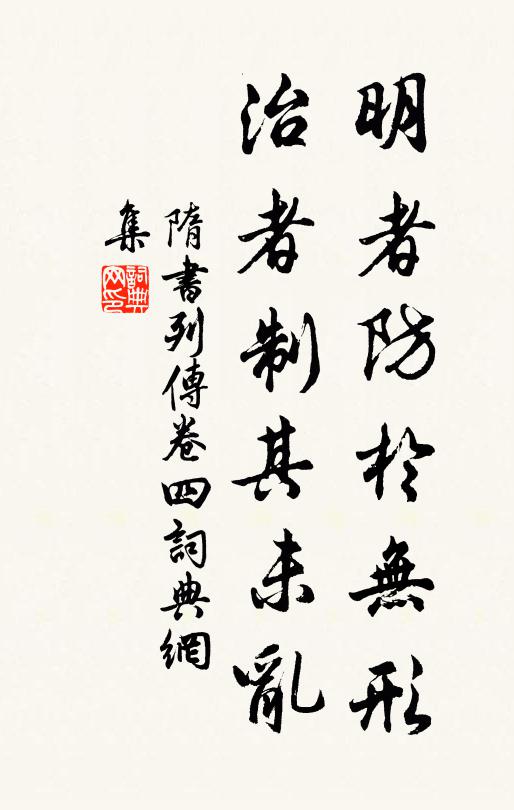 明者防於無形
治者制其未亂
隋書列傳卷四詞典網
集
詞典
网印